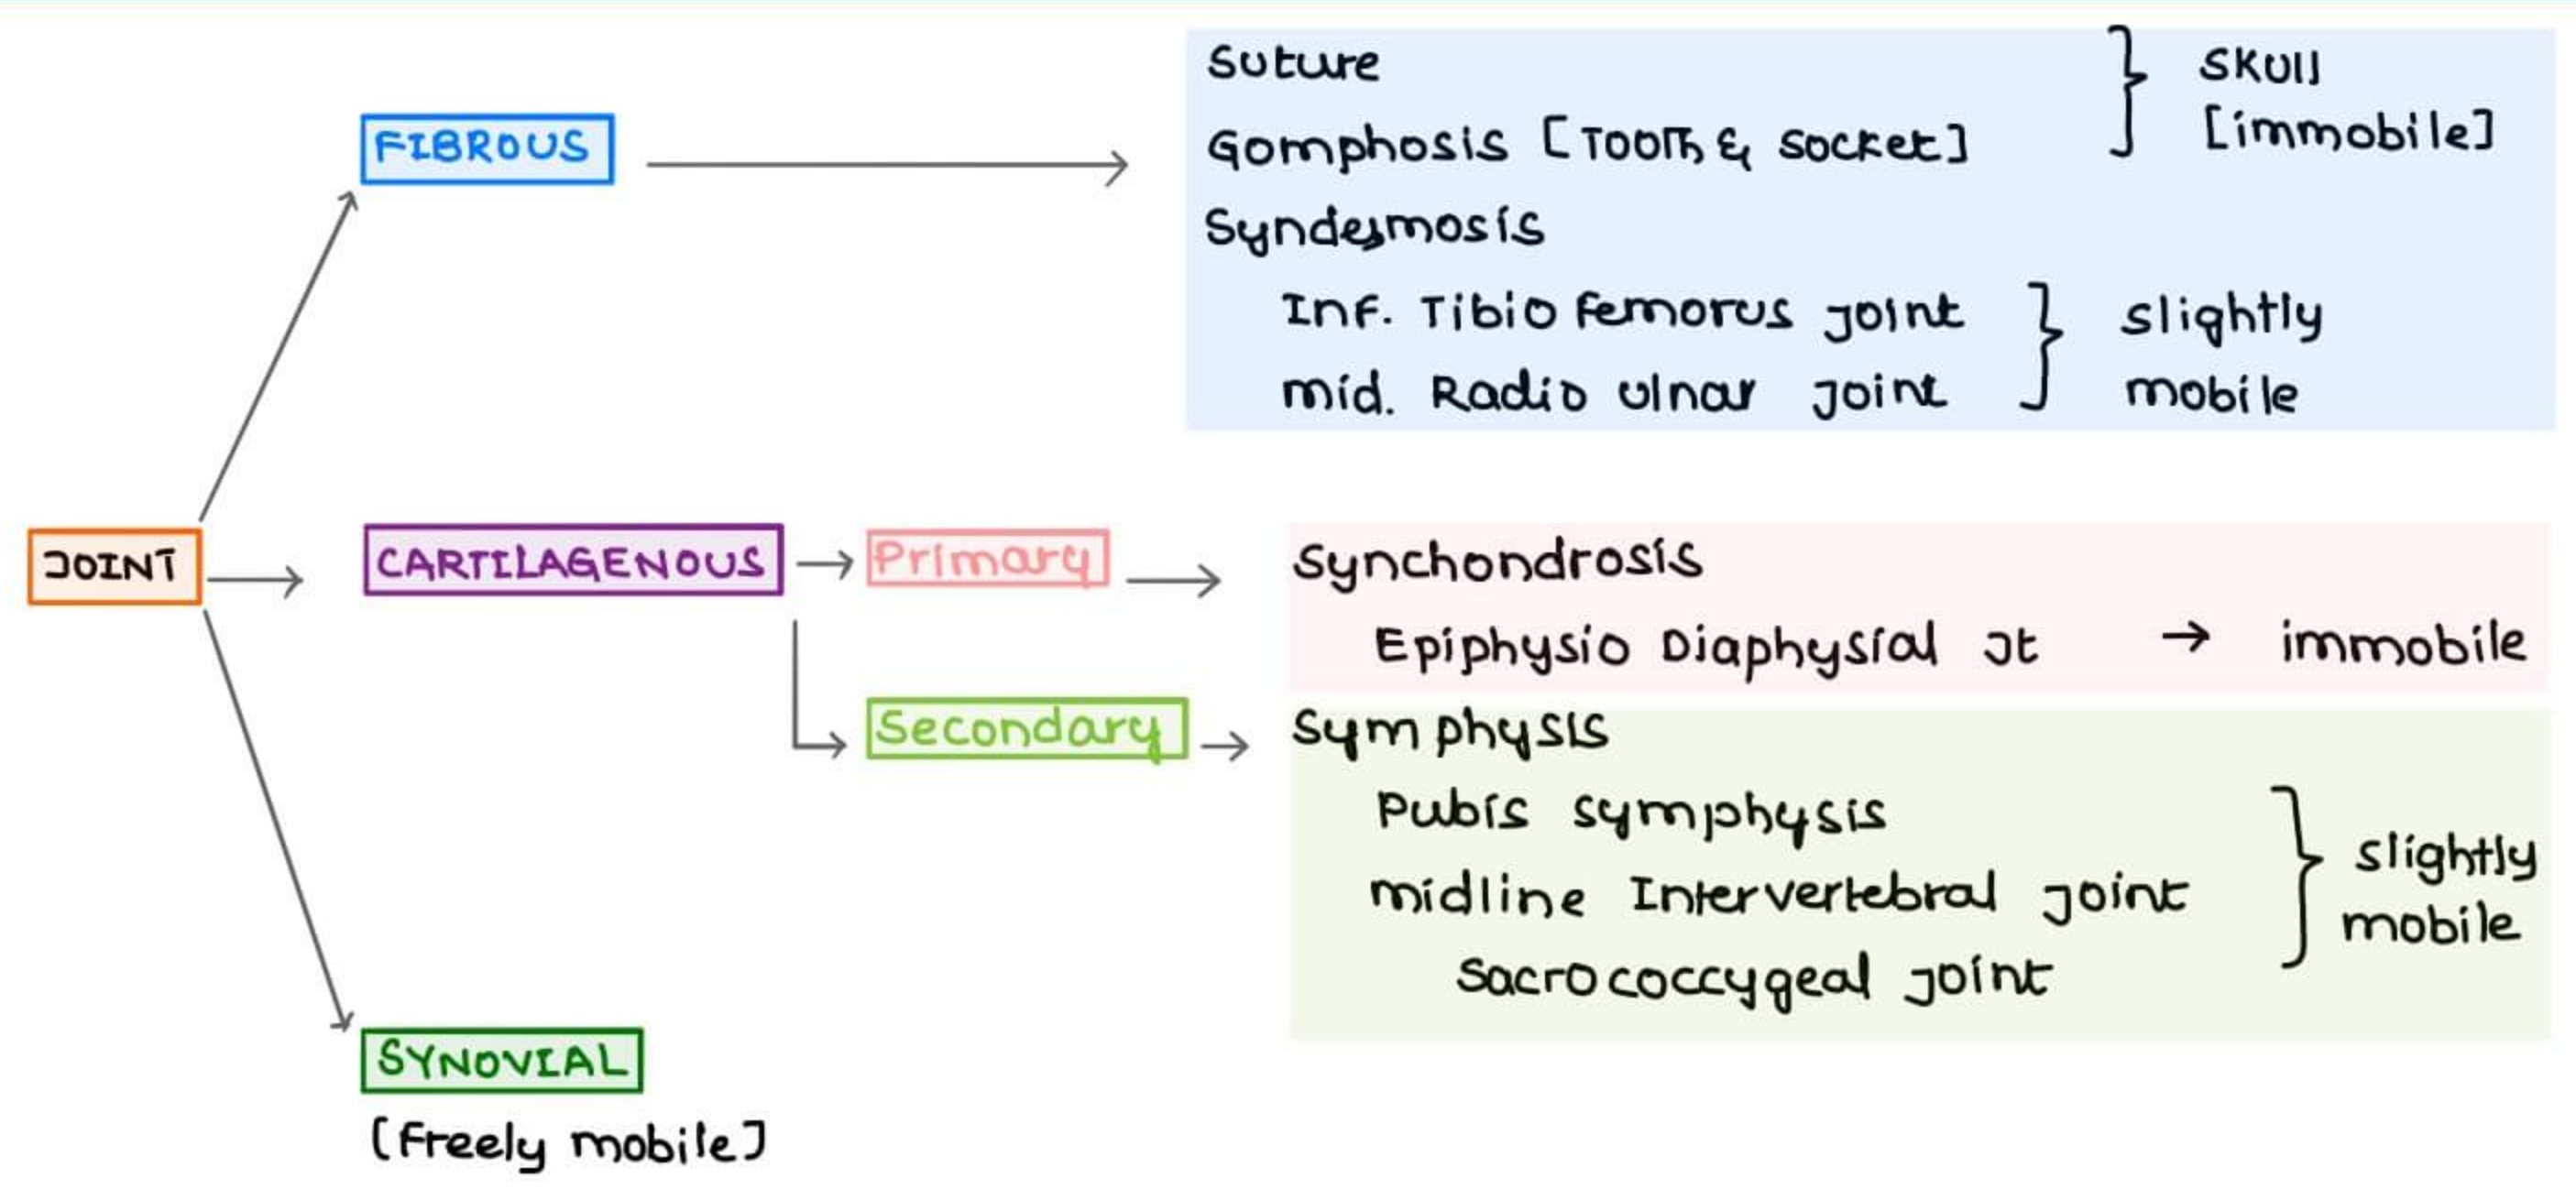 Suture
Gomphosis [Tooth & Socket]
Skull
[immobile]
Syndesmosis
Inf. Tibio Femorus Joint
mid. Radio Ulnar Joint
slightly
mobile
FIBROUS
JOINT
CARTILAGENOUS
Primary
Synchondrosis
Epiphysio Diaphysial Jt → immobile
Secondary
Symphysis
Pubis symphysis
midline Intervertebral Joint
Sacrococcygeal Joint
slightly
mobile
SYNOVIAL
[Freely mobile]